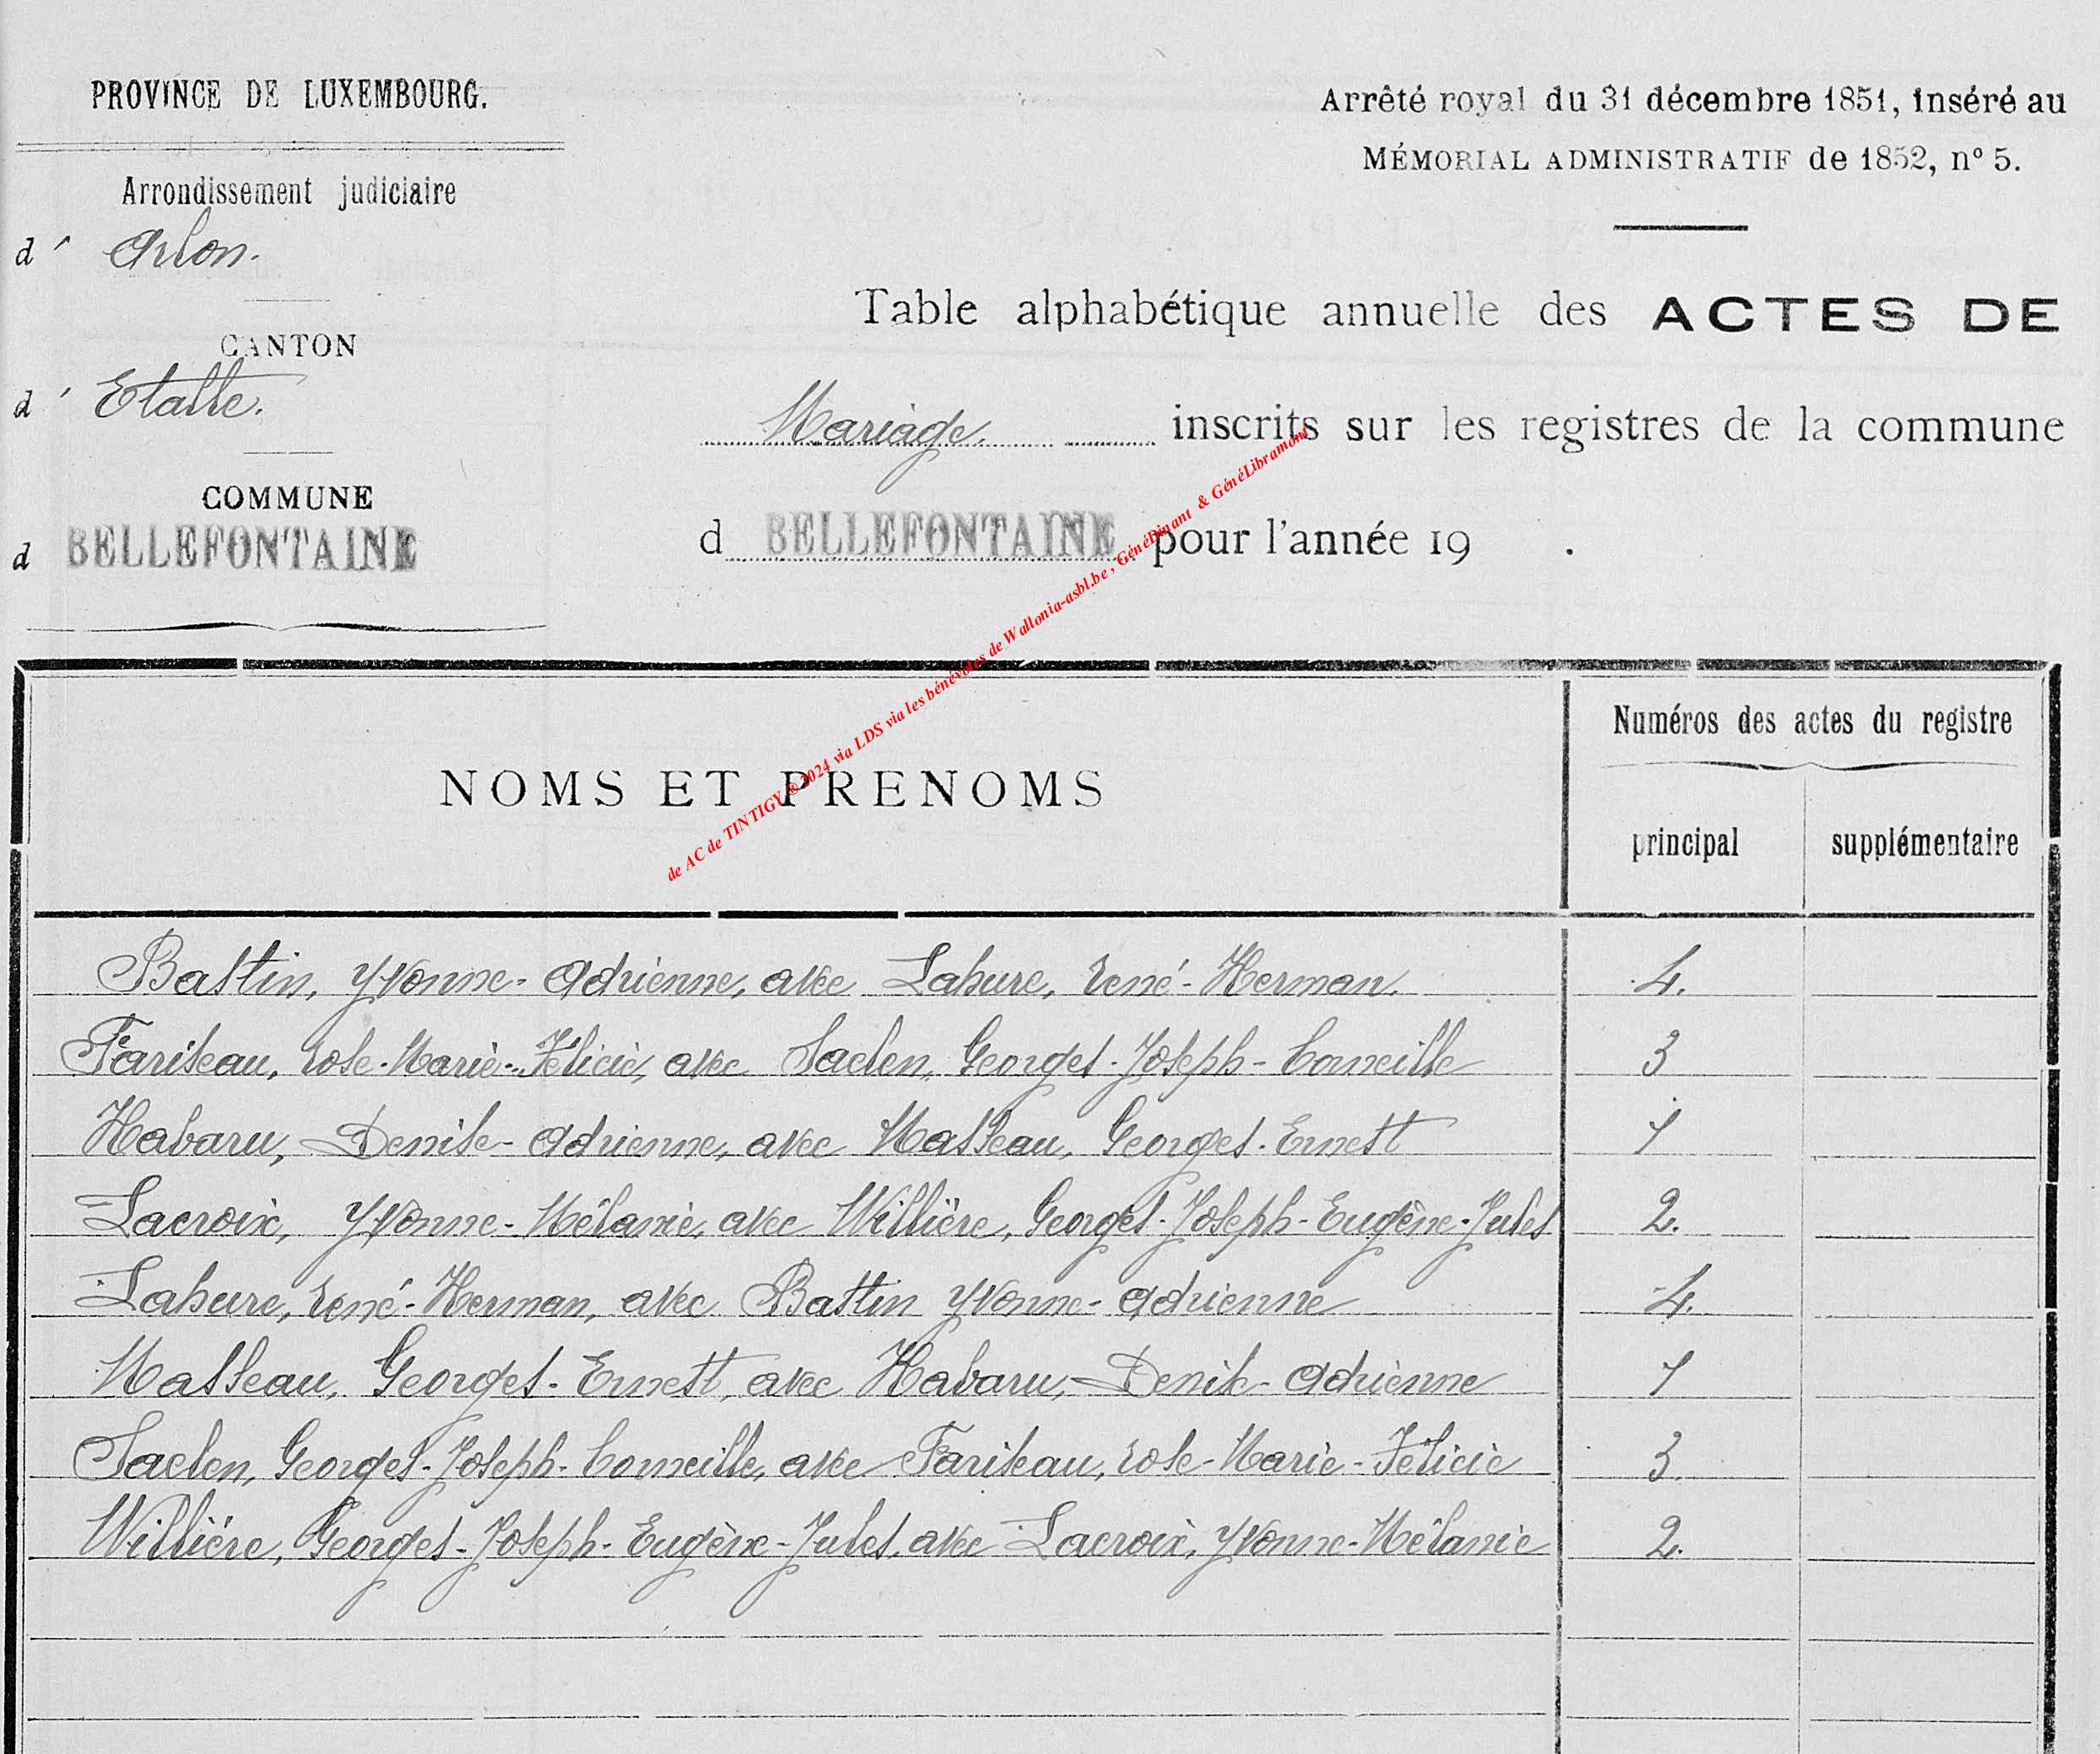 PROVINCE DE LUXEMBOURG.
Arrêté royal du 31 décembre 1851, inséré au
MÉMORIAL ADMINISTRATIF de 1852, nº 5.
Arrondissement judiciaire
d' Arlon.
CANTON
d' Etalle.
COMMUNE
d BELLEFONTAINE
Table alphabétique annuelle des ACTES DE
Mariage. inscrits sur les registres de la commune
d BELLEFONTAINE pour l'année 19 .
de AC de TINTIGY ®2024 via LDS via les bénévoles de Wallonia-asbl.be, GénéDinant & GénéLibramont
NOMS ET PRENOMS
Numéros des actes du registre
principal supplémentaire
Bastin, Yvonne-Adrienne, avec Lahure, René-Herman. 4.
Fariseau, Rose-Marie-Félicie, avec Saelen, Georges-Joseph-Corneille 3
Habaru, Denise-Adrienne, avec Masseau, Georges-Ernest 1
Lacroix, Yvonne-Mélanie, avec Willière, Georges-Joseph-Eugène-Jules 2.
Lahure, René-Herman, avec Bastin Yvonne-Adrienne 4.
Masseau, Georges-Ernest, avec Habaru, Denise-Adrienne 1
Saelen, Georges-Joseph-Corneille, avec Fariseau, Rose-Marie-Félicie 3.
Willière, Georges-Joseph-Eugène-Jules, avec Lacroix, Yvonne-Mélanie 2.